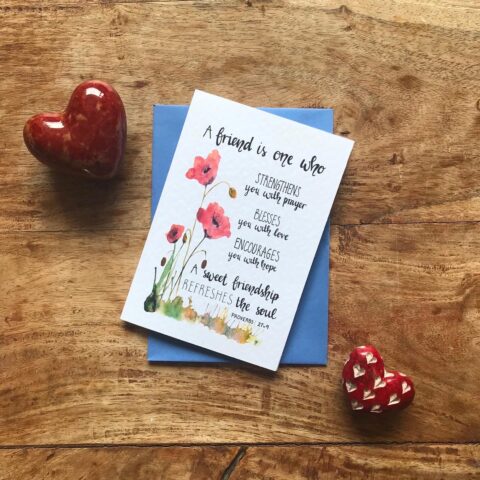 A friend is one who
STRENGTHENS
you with prayer
BLESSES
you with love
ENCOURAGES
you with hope
A sweet friendship
REFRESHES the soul
PROVERBS 27:9